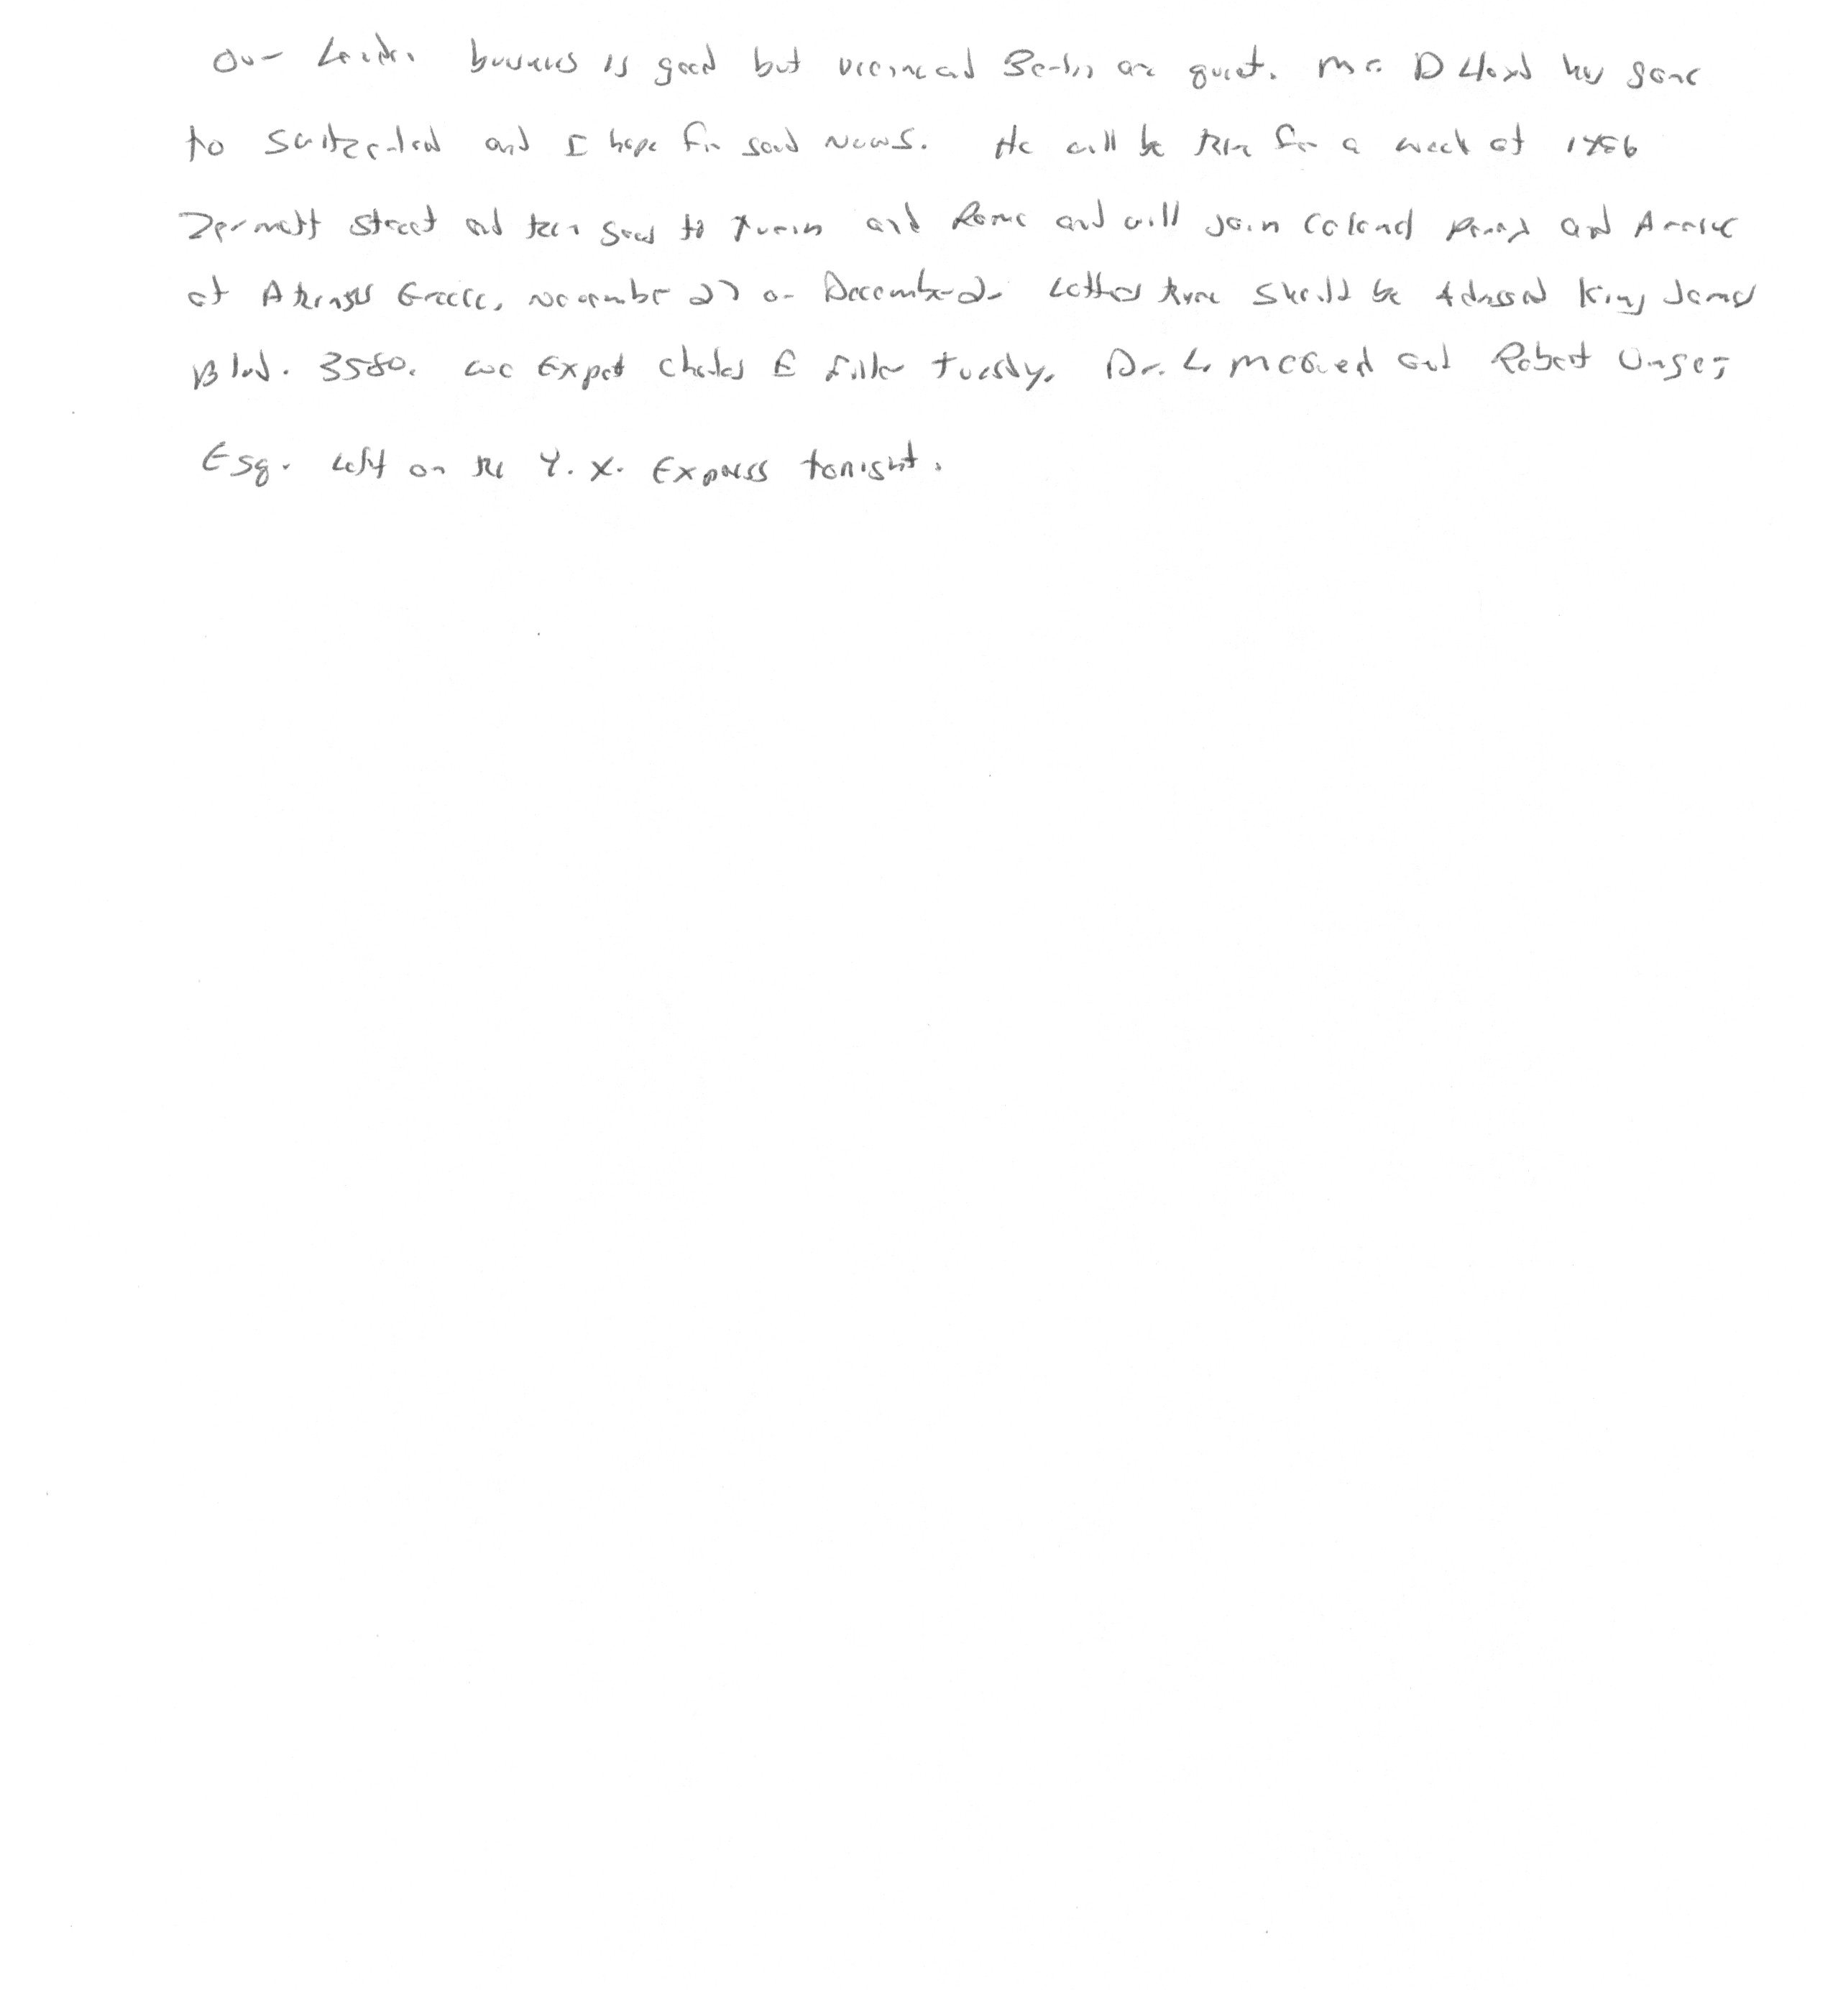 Our London business is good but Vienna and Berlin are quiet. Mr. D Lloyd has gone
to Switzerland and I hope for good news. He will be there for a week at 1456
Zermott Street and then goes to Turin and Rome and will join Colonel Parry and Arrive
at Athens Greece, November 27 or December 2. Letters there should be Adressed King James
Blvd. 3580. We Expect Charles E Fuller Tuesday. Dr. L McQueed and Robert Unger,
Esq. Left on the Y. X. Express tonight.